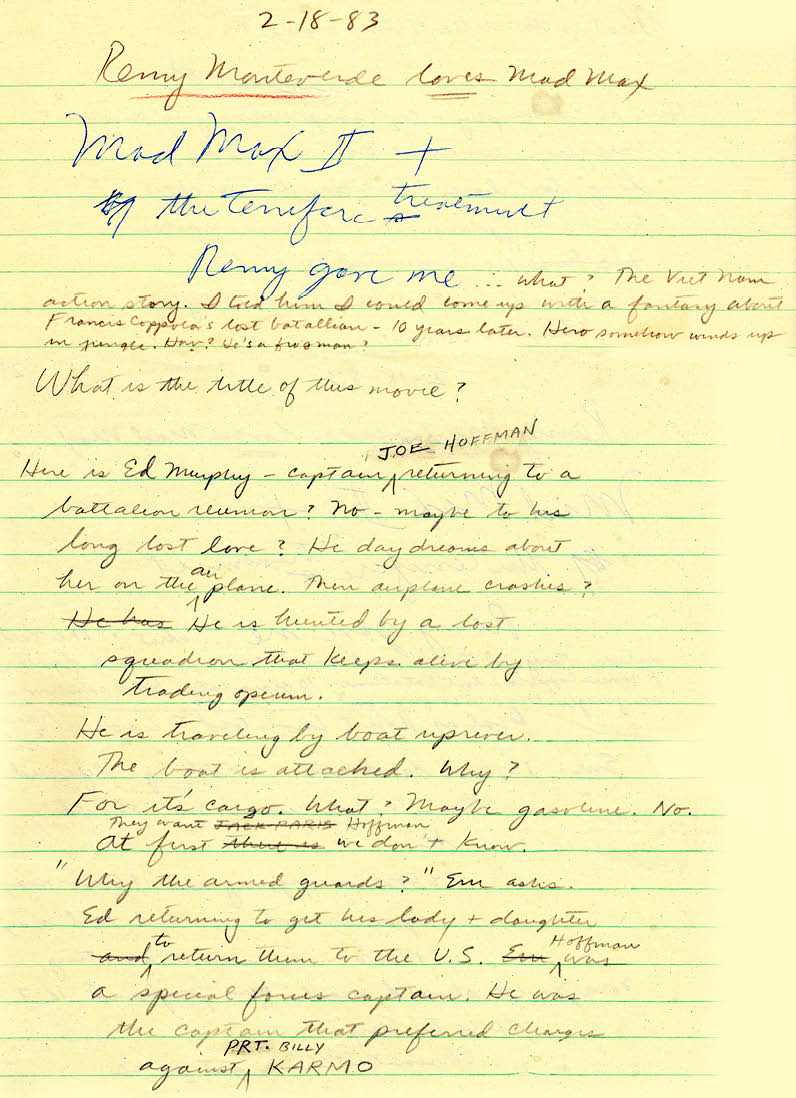 2-18-83
Remy Monteverde loves Mad Max
Mad Max II +
the terriferc treatment
Remy gave me ... what? The Viet Nam
action story. I told him I could come up with a fantasy about
Francis Coppola's lost batallion - 10 years later. Hero somehow winds up
in jungle. How? He's a frogman?
What is the title of this movie?
JOE HOFFMAN
Here is Ed Murphy - captain returning to a
battalion reunion? No - maybe to his
long lost love? He daydreams about
her on the airplane. Then airplane crashes?
He has He is hunted by a lost
squadron that keeps alive by
trading opeium.
He is traveling by boat upriver.
The boat is attacked. Why?
For it's cargo. What? Maybe gasoline. No.
They want JACK PARIS Hoffman
At first there is we don't know.
"Why the armed guards?" Em asks.
Ed returning to get his lady + daughter
and to return them to the U.S. Em Hoffman was
a special forces captain. He was
the captain that preferred charges
PRT. BILLY
against KARMO